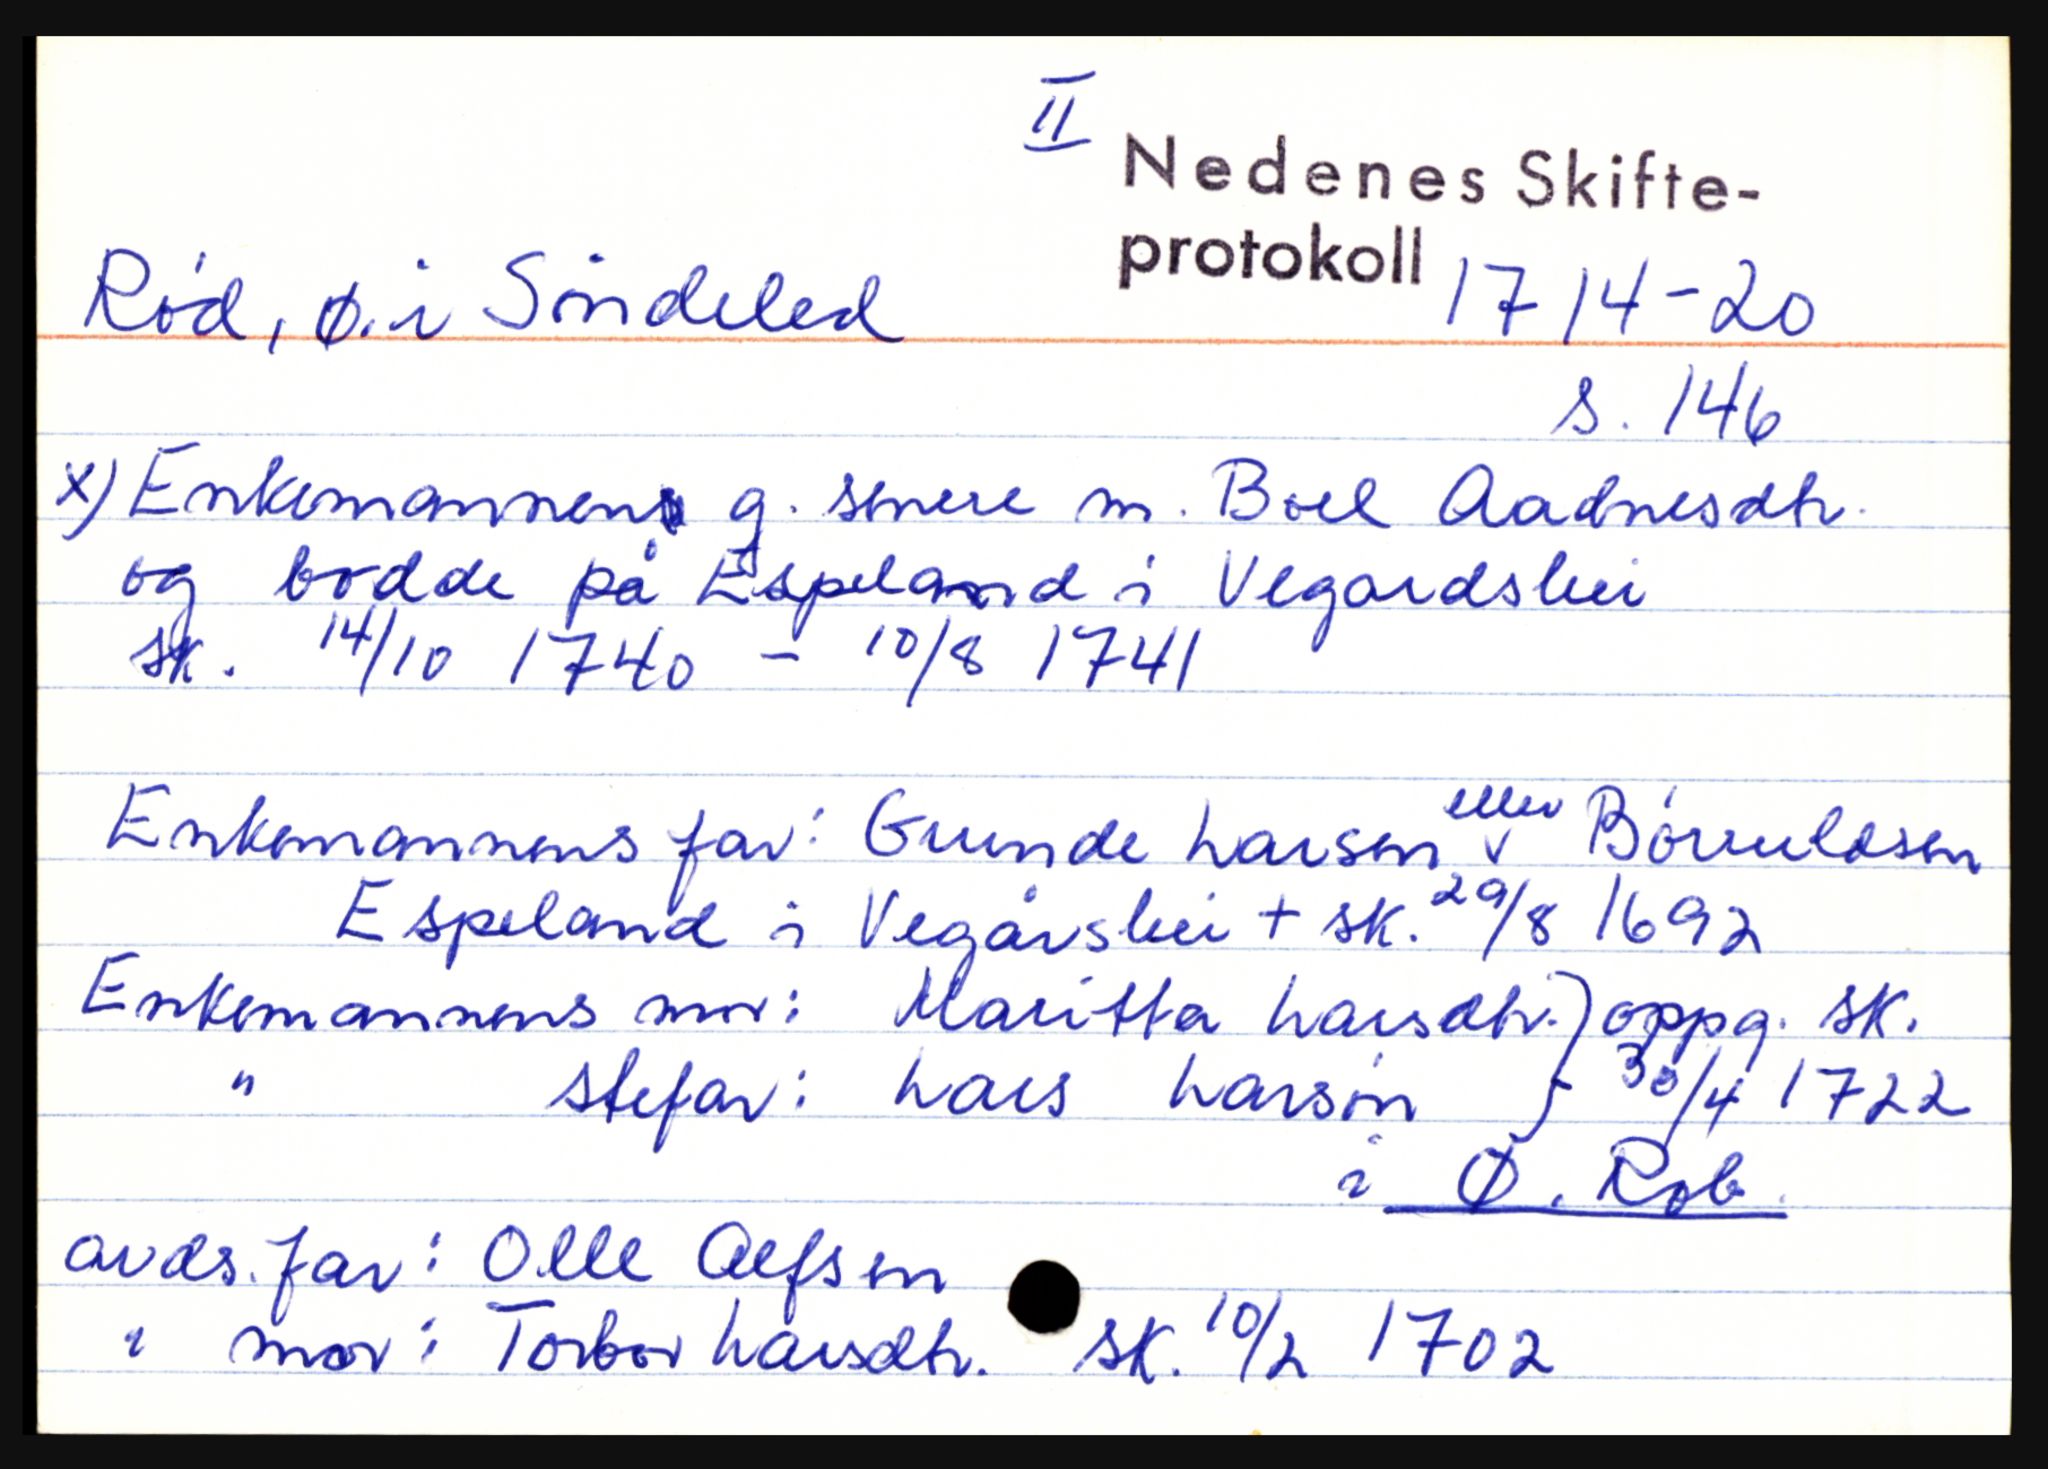 II
Nedenes Skifte-
protokoll 1714-20
Rød, ø. i Søndeled
s. 146
x) Enkemannen g. senere m. Boel Aadnesdtr.
og bodde på Espeland i Vegardshei
sk. 14/10 1740 - 10/8 1741
Enkemannens far: Gunde Larsen eller Børruldsen
Espeland i Vegårshei + sk. 29/8 1692
Enkemannens mor: Maritta Larsdtr. } oppg. sk.
" stefar: Lars Larsøn } 30/4 1722
i Ø. Røb.
avds. far: Olle Alfsen
" mor: Torbor Larsdtr. sk. 10/2 1702